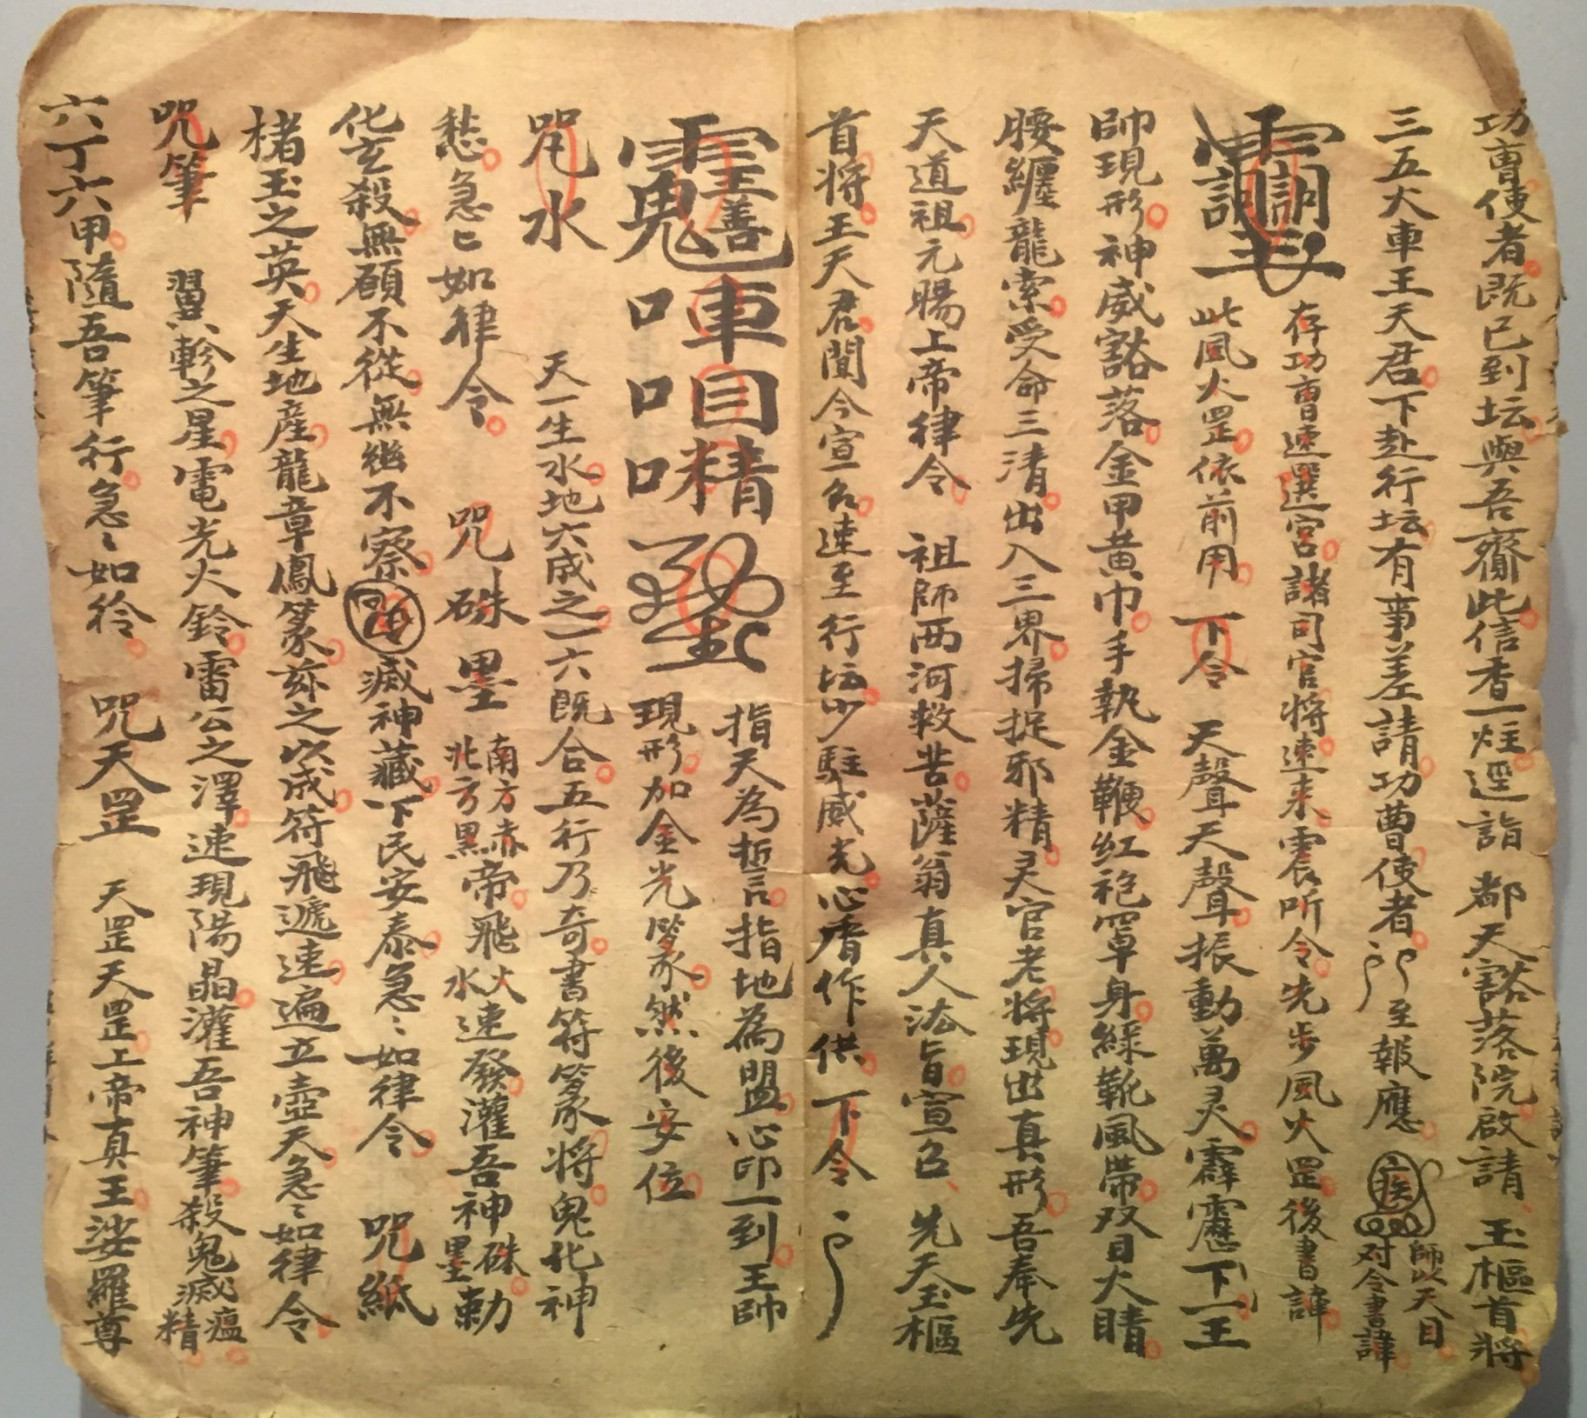 功曹使者既已到坛與吾齎此信香一炷逕詣 都天豁落院啟請 玉樞首將
三五火車王天君下赴行坛有事差請功曹使者 至報應 師以天目 对令書諱
存功曹速選宮諸司官将速来震听令先步風火罡後書諱
此風火罡依前用 下令 天聲天聲振動萬灵霹靂下一王
帥現形神威豁落金甲黄巾手執金鞭紅袍罩身綠靴風帶双目火睛
腰纏龍索受命三清出入三界掃捉邪精灵官老将現出真形吾奉先
天道祖元陽上帝律令 祖師西河救苦薩翁真人法旨宣召 先天玉樞
首将王天君聞今宣召速至行坛少駐威光心香作供 下令
指天為誓言指地為盟心印一到王帥
車目精
口口口
現形加金光篆然後安位
咒水 天一生水地六成之一六既合五行乃奇書符篆将鬼化神
愁急匕如律令 咒硃墨 南方赤 北方黑 帝飛火 水速發灌吾神硃 墨勅
化玄殺無願不從無幽不察 滅神藏下民安泰急〻如律令 咒紙
楮玉之英天生地産龍章鳳篆菥之以成符飛遞速遍立壺天急〻如律令
咒筆 翼軫之星電光火鈴雷公之澤速現陽晶灌吾神筆殺鬼滅瘟 精
六丁六甲隨吾筆行急〻如 咒天罡 天罡天罡上帝真王娑羅尊